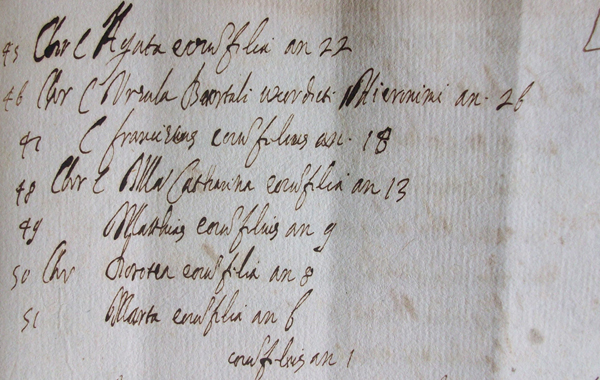 45 Chr C Agata eorū filia an 22
46 Chr C Ursula Bortoli uxor dicti Hieronimi an. 26
47 C Franciscus eorū filius an. 18
48 Chr C Mᵃ Catharina eorū filia an 13
49 Matthias eorū filius an 9
50 Chr Dorotea eorū filia an 8
51 Marta eorū filia an 6
eorū filius an 1